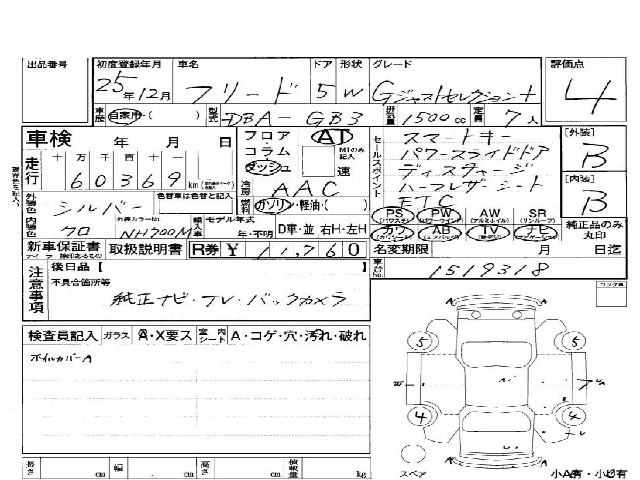 出品番号 初度登録年月 車名 ドア 形状 グレード 評価点
25年12月 フリード 5 W Gジャストセレクション+ 4
車歴 自家用・( ) 型式 DBA-GB3 排気量 1500cc 定員 7人
車検 年 月 日
フロア・コラム ダッシュ AT MTのみ記入 速
セールスポイント スマートキー
パワースライドドア
ディスチャージ
ハーフレザーシート
ETC
[外装] B
[内装] B
走行 十 万 千 百 十 一
60369 km
冷房 AAC
燃料 ガソリン・軽油・( )
外装色 シルバー 色替車は色替と記入
内装色 クロ 外装カラーNo. NH700M
輸入車 モデル年式 年・不明 D車・並 右H・左H
PS PW AW SR
カワ AB TV ナビ
純正品のみ丸印
新車保証書 取扱説明書 R券 ¥ 11,760
名変期限 月 日迄
車台No. 1519318
注意事項 後日品【 】
不具合箇所等
純正ナビ・TV・バックカメラ
コック車
検査員記入 ガラス A・X要ス 室内シート A・コゲ・穴・汚れ・破れ
ホイルカバーA
5 5
4 4
スペア
小A有・小U有
長さ cm 幅 cm 高さ cm 積載量 kg